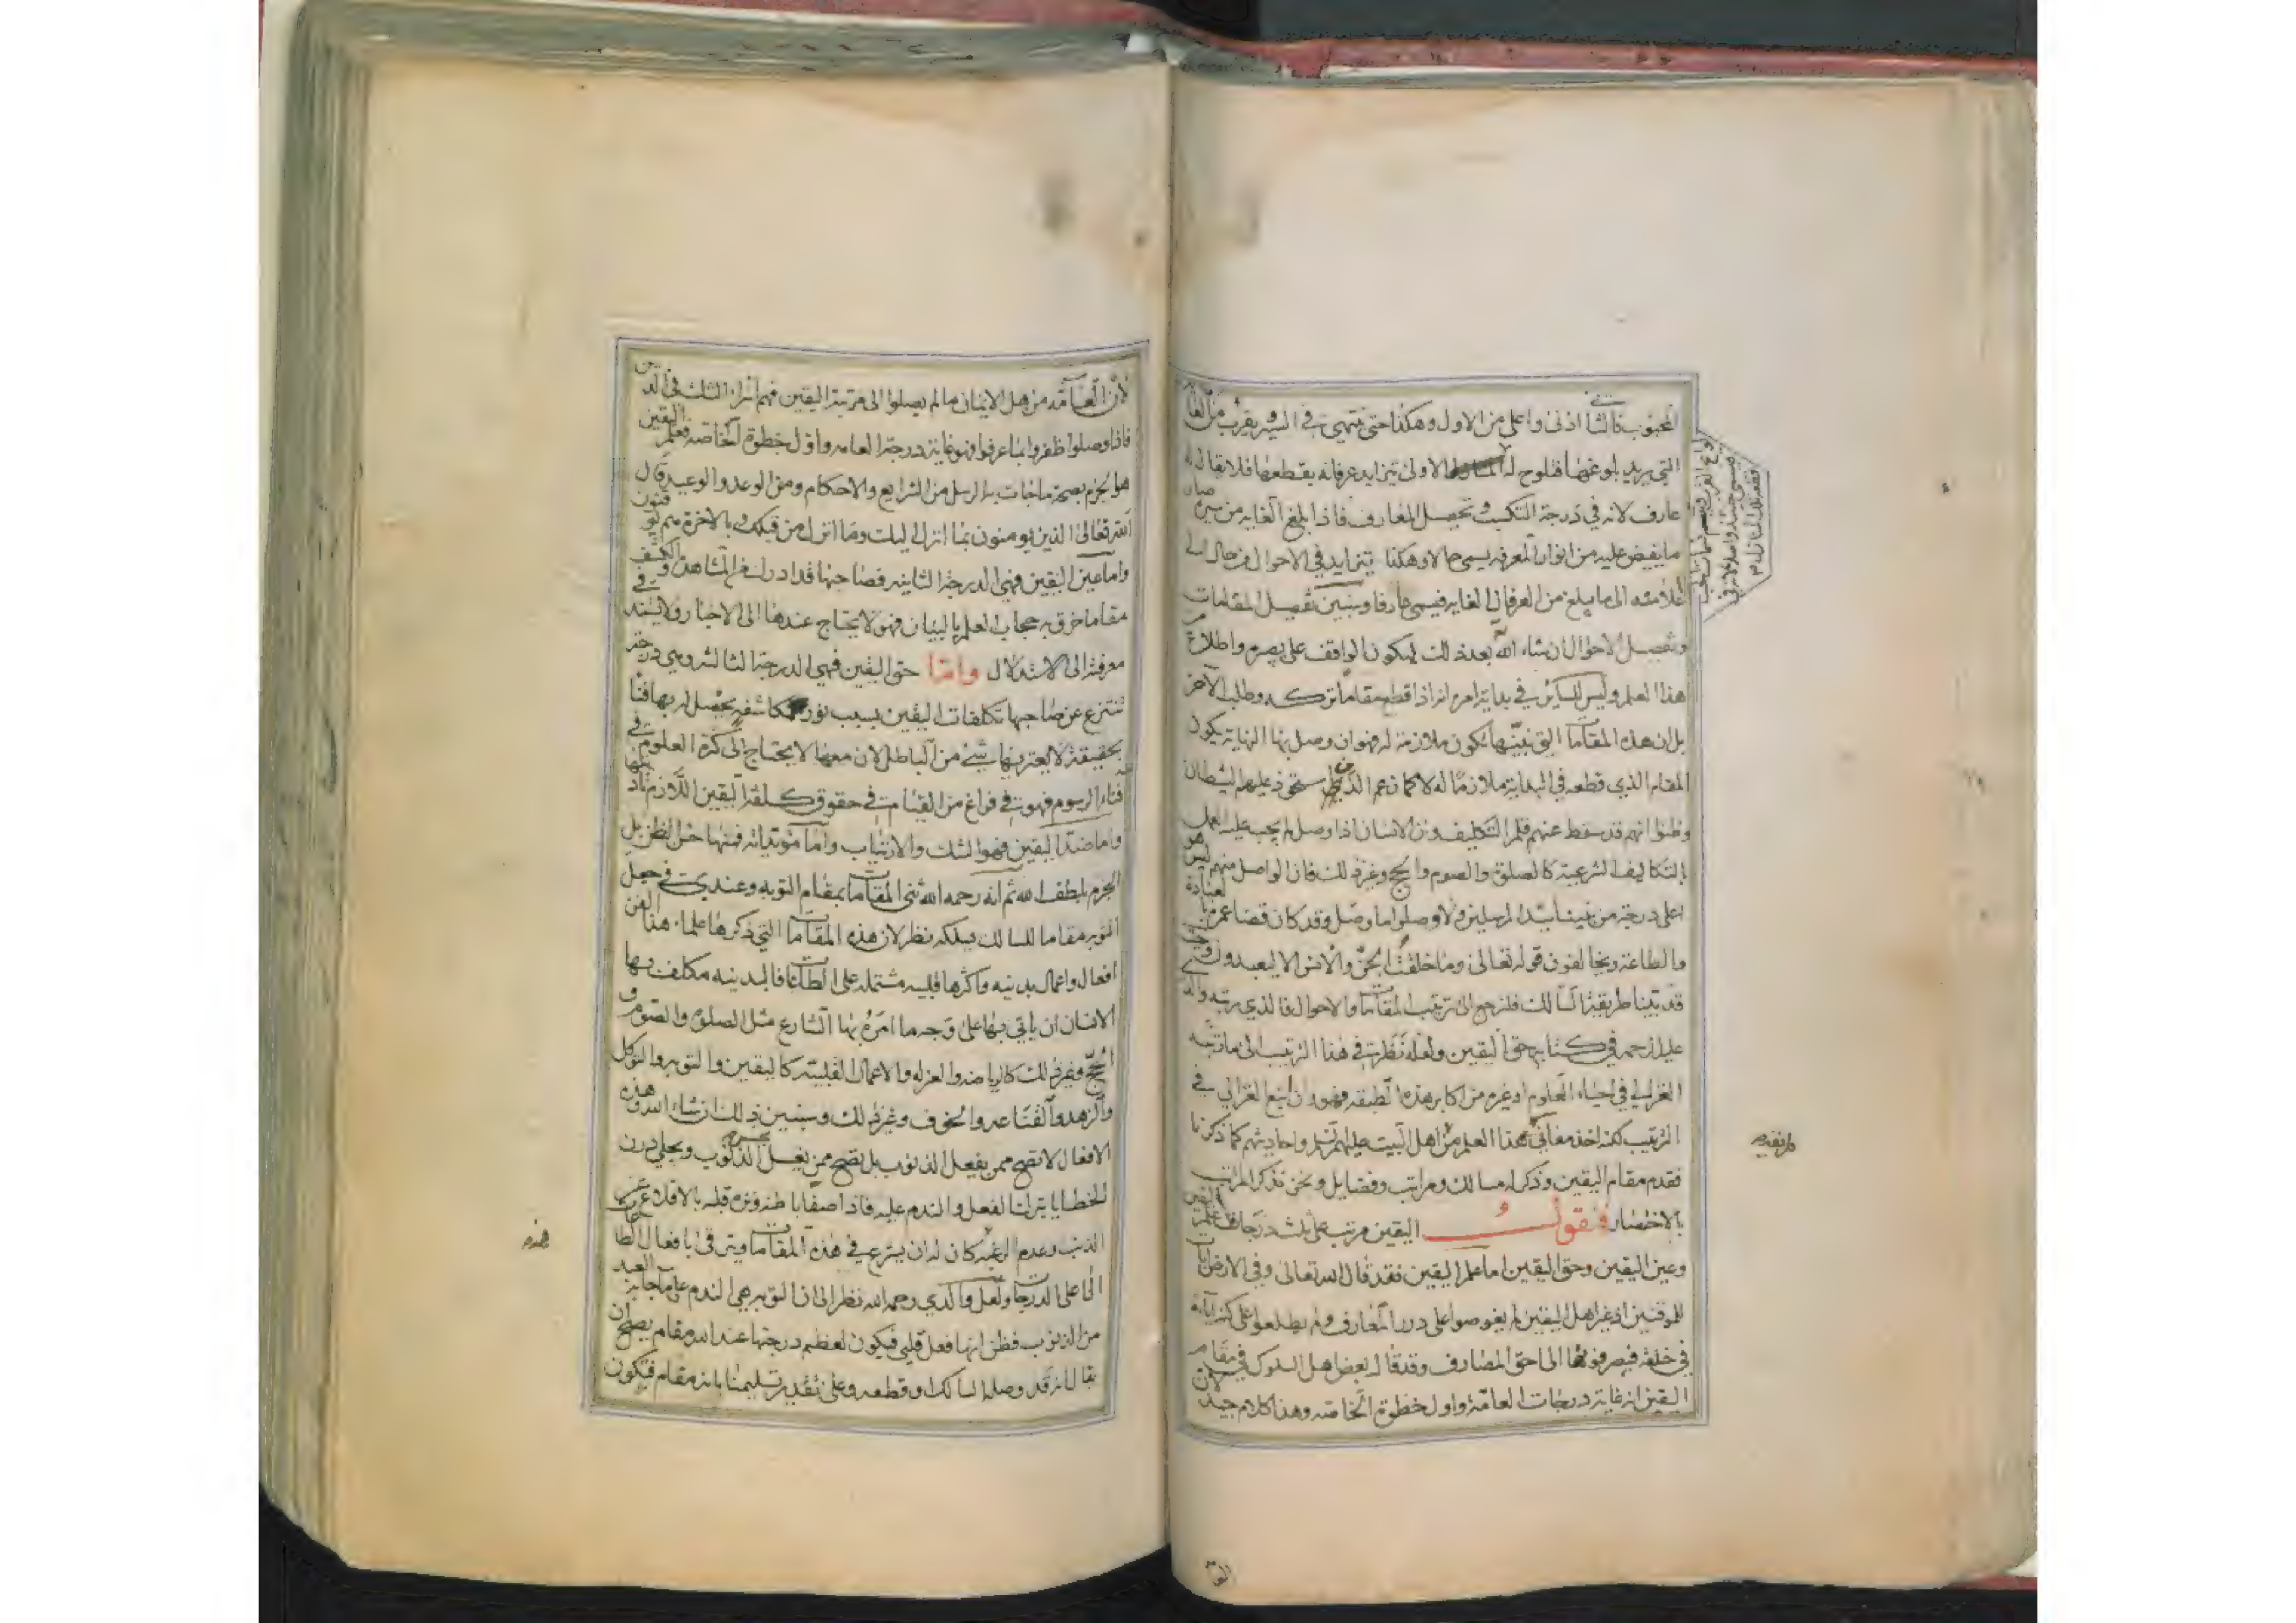 المحبوب فالثا ادنى واعلى من الاول وهكذا حتى ينتهي في السير بقرب من
التي يريد بلوغها فتلوح له الاولى تتزايد عرفانه بقطعها فلا يقال له
عارف لانه في درجة التكسب وتحصيل المعارف فاذا بلغ الغاية من سيره صار
ما يفيض عليه من انوار المعرفة يسمى حالا وهكذا يتزايد في الاحوال من حال الى
الى ما يبلغ من العرفان الغايه فيسمى عارفا وسنبين تفصيل المقامات
وتفصيل الاحوال ان شاء الله بعد ذلك ليكون الواقف على بصيرة واطلاع من
هذا العلم وليس للسائر في بداية امره انه اذا قطع مقاما تركه وطلب الآخر
بل ان هذه المقامات التي نبينها تكون ملازمة له فهو ان وصل بها النهاية يكون
المقام الذي قطعه في البداية ملازما له لا كما زعم الذين استحوذ عليهم الشيطان
وظنوا انهم قد سقط عنهم قلم التكليف وان الانسان اذا وصل لم يجب عليه العمل
بالتكاليف الشرعية كالصلوة والصوم والحج وغير ذلك فان الواصل منهم ليس هو
اعلى درجة من نبينا سيد المرسلين ولا وصلوا ما وصل وقد كان قضا عمره بالعبادة
والطاعة ويخالفون قوله تعالى وما خلقت الجن والانس الا ليعبدون وحيث
قد بينا طريقة السالك فلنرجع الى ترتيب المقامات والاحوال فالذي رتبه والدي
عليه الرحمه في كتابه حق اليقين ولعله نظر في هذا الترتيب الى ما رتبه
الغزالي في احياء العلوم او غيره من اكابر هذه الطبقه فهو وان اتبع الغزالي في
الترتيب لكنه اخذ معاني هذا العلم من اهل البيت عليهم السلم واحاديثهم كما ذكرنا
فقدم مقام اليقين وذكر له مسالك ومراتب وفضايل ونحن نذكر المراتب
بالاختصار فنقول اليقين مرتب على ثلث درجات علم اليقين
وعين اليقين وحق اليقين اما علم اليقين فقد قال الله تعالى وفي الارض آيات
للموقنين اذ غير اهل اليقين لم يغوصوا على درر المعارف ولم يطلعوا على كنز آياته
في خلقه فيصرفونها الى احق المصارف وقد قال بعض اهل السلوك في مقام
اليقين انه غاية درجات العامة واول خطوة الخاصه وهذا كلام جيد لان
لان العامه من اهل الايمان ما لم يصلوا الى مرتبة اليقين فهم اسراء الشك في الدين
فاذا وصلوا ظفروا بما عرفوا فهو غاية درجة العامه واول خطوة الخاصه فعلم اليقين
هو الجزم بصحة ما جاءت به الرسل من الشرايع والاحكام ومن الوعد والوعيد قال
الله تعالى الذين يومنون بما انزل اليك وما انزل من قبلك وبالاخرة هم يوقنون
واما عين اليقين فهي الدرجة الثانيه فصاحبها قد ادرك المشاهدة والكشف في
مقاما خرق به حجاب العلم بالبيان فهو لا يحتاج عندها الى الاخبار ولا يستند في
معرفته الى الاستدلال واما حق اليقين فهي الدرجة الثالثة وهي درجة
تنتزع عن صاحبها تكلفات اليقين بسبب نور مكاشفة يحصل له بها فتأ
بحقيقة لا يعتريها شيئ من الباطل لان معها لا يحتاج الى كثرة العلوم في
فناء الرسوم فهو في فراغ من القيام في حقوق كلفة اليقين اللازم
واما ضد اليقين فهو الشك والارتياب واما مؤيداته فمنها حسن الظن بل
الجزم بلطف الله ثم انه رحمه الله ثنى المقامات بمقام التوبه وعندي في جعل
التوبة مقاما للسالك يسلكه نظر لان هذه المقامات التي ذكرها علماء هذا الفن
افعال واعمال بدنيه واكثرها قلبيه مشتمله على الطاعات فالبدنيه مكلف بها
الانسان ان ياتي بها على وجه ما امره بها الشارع مثل الصلوة والصوم و
الحج وغير ذلك كالرياضه والعزله والاعمال القلبية كاليقين والتوبه والتوكل
والزهد والقناعه والخوف وغير ذلك وسنبين ذلك ان شاء الله وهذه
الافعال لا تصح ممن يفعل الذنوب بل تصح ممن يغسل الذنوب ويجلي درن
الخطايا بترك الفعل والندم عليه فاذا صفا باطنه وعزم قلبه بالاقلاع عن
الذنب وعدم الرغبة كان له ان يشرع في هذه المقامات ويترقى بافعال الطاعات
الى اعلى الدرجات ولعل والدي رحمه الله نظر الى ان التوبه هي الندم على ما جناه العبد
من الذنوب فظن انها فعل قلبي فيكون لعظم درجتها عند الله مقام يصلح ان
يقال انه قد وصله السالك او قطعه وعلى تقدير تسليمنا بانه مقام فيكون
هذه